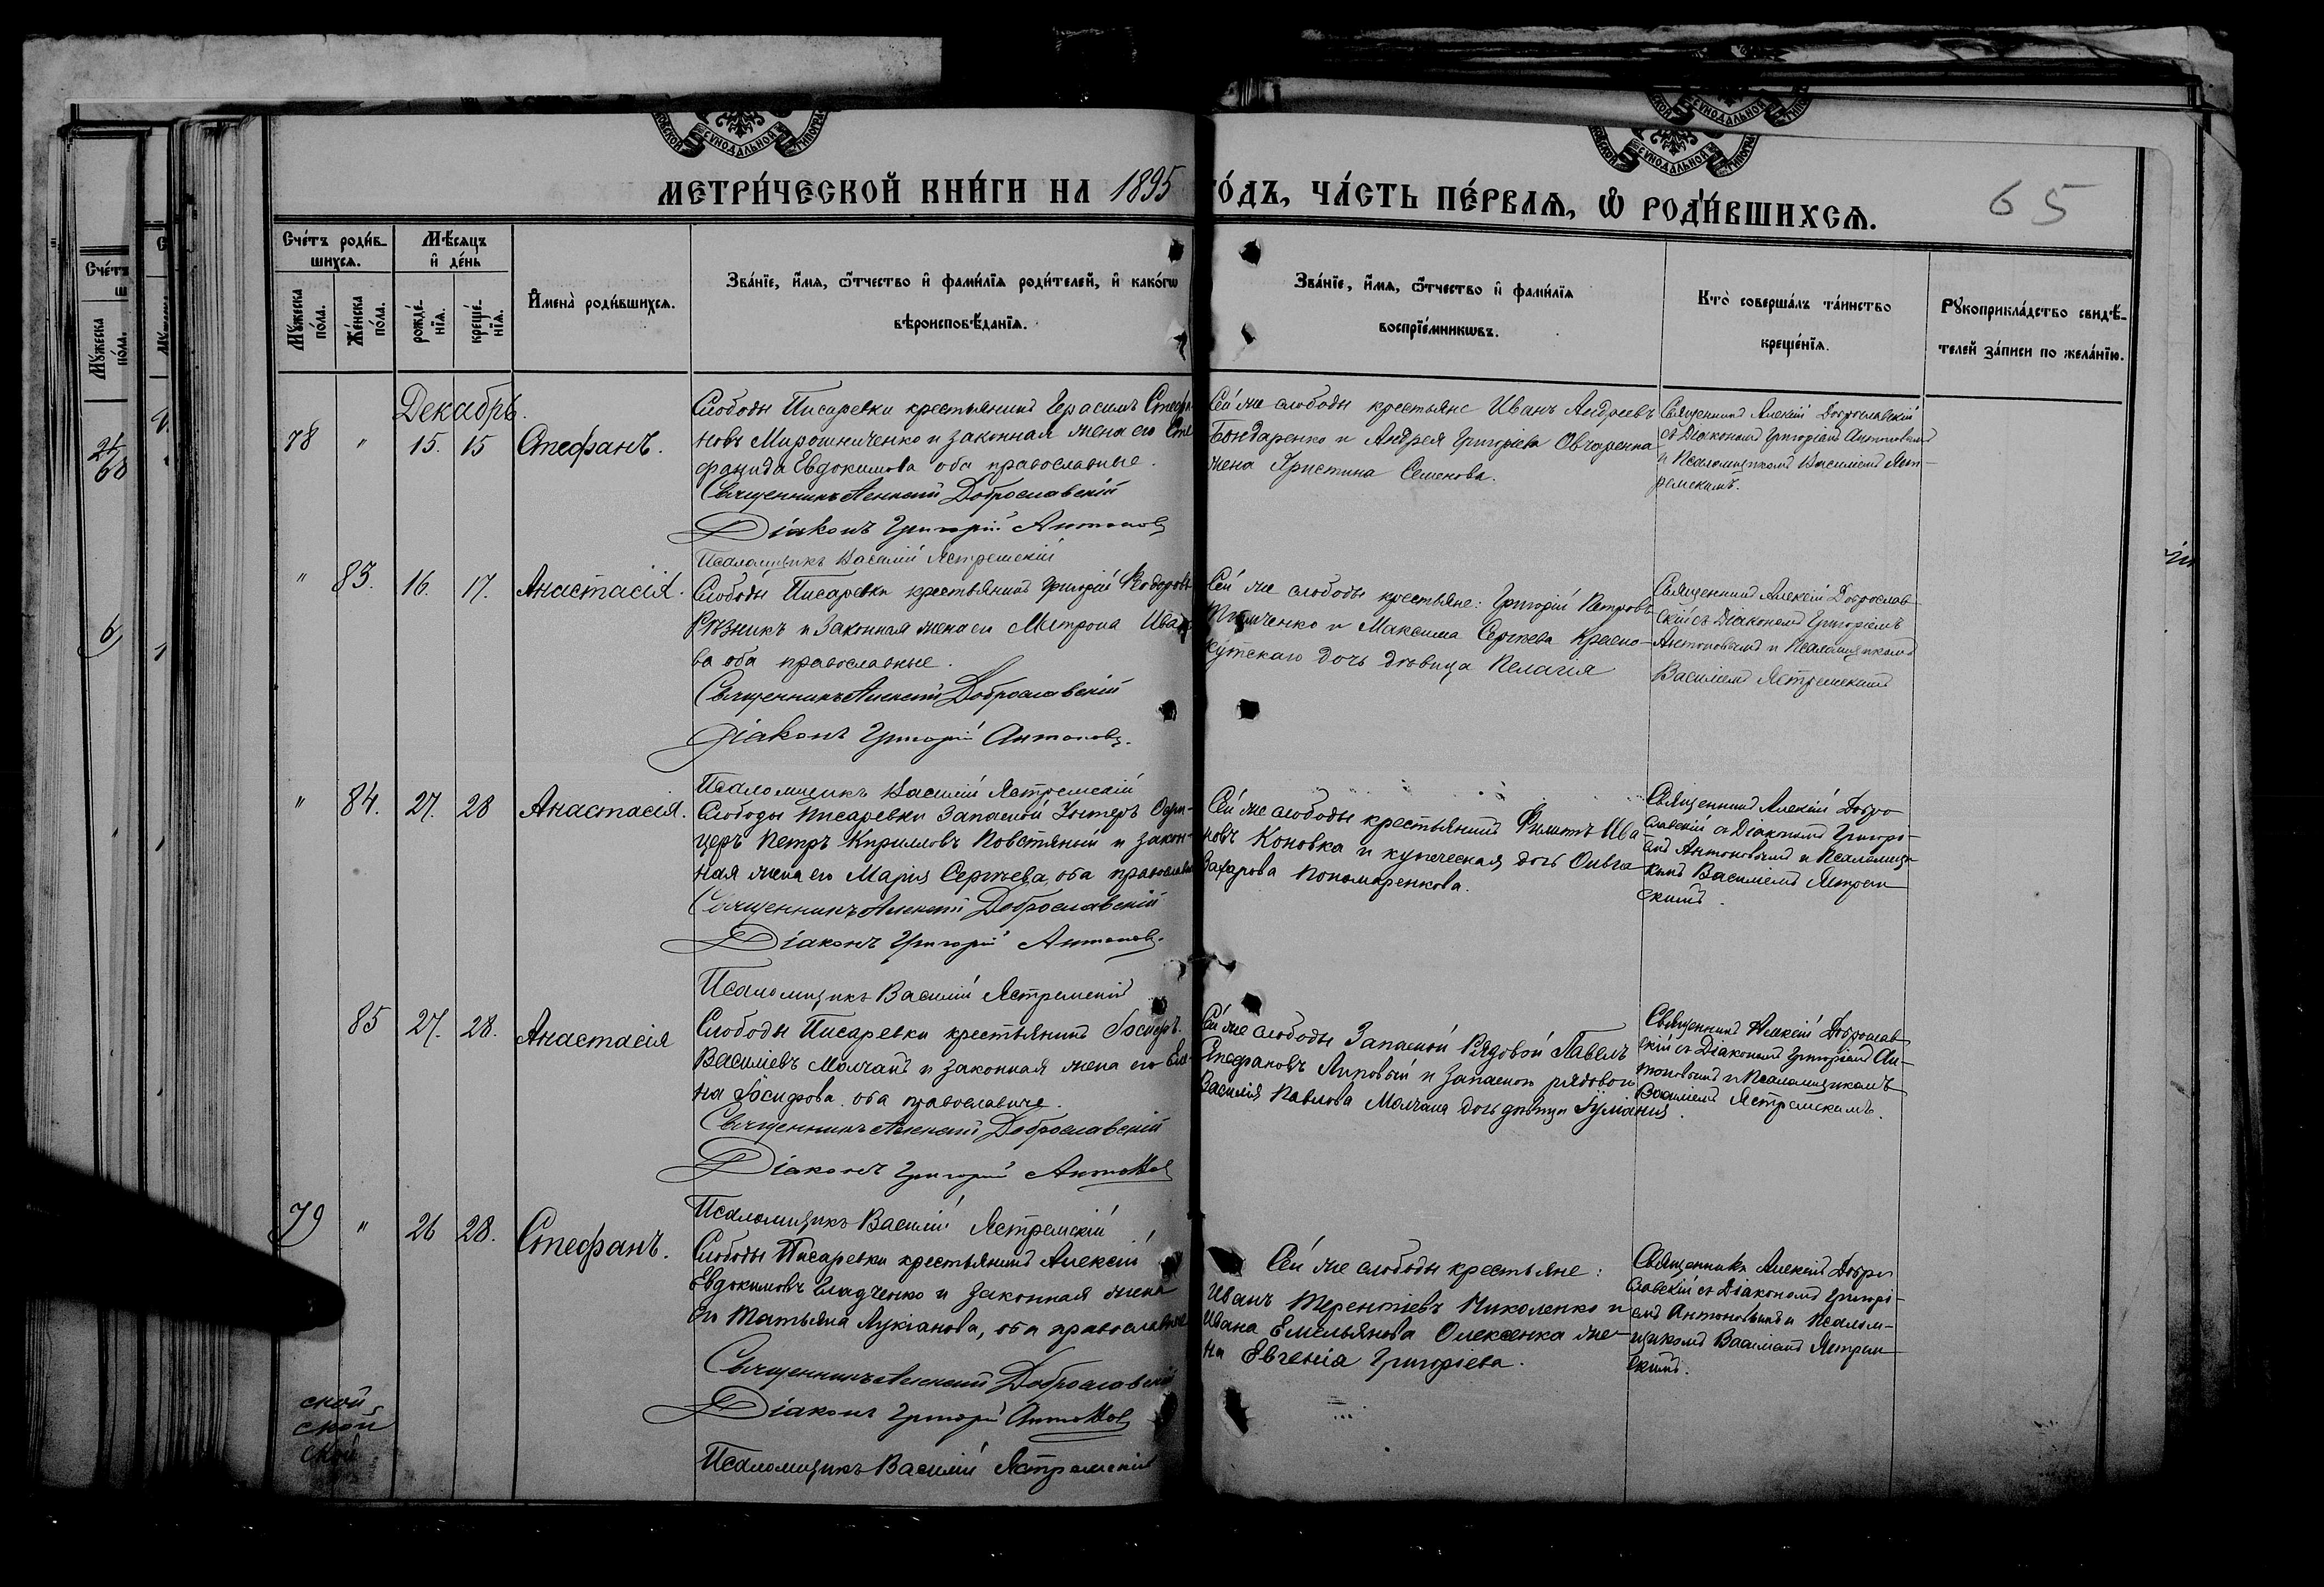 МОСКОВСКОЙ СѴНОДАЛЬНОЙ ТИПОГРАФ
МЕТРИ́ЧЕСКОЙ КНИ́ГИ НА 1895 ГО́ДЪ, ЧА́СТЬ ПЕ́РВАѦ, Ѡ РОДИ́ВШИХСѦ.
65
Сче́тъ роди́в-
шихсѧ.
Мѣ́сѧцъ
и҆ де́нь
Мꙋ́жеска
по́ла.
Же́нска
по́ла.
рожде́-
нїѧ.
креще́-
нїѧ.
И҆мена̀ роди́вшихсѧ.
Зва́нїе, и҆́мѧ, ѻ҆́тчество и҆ фами́лїѧ роди́телей, и҆ како́гѡ
вѣроисповѣ́данїѧ.
Зва́нїе, и҆́мѧ, ѻ҆́тчество и҆ фами́лїѧ
воспрїе́мникѡвъ.
Кто̀ соверша́лъ та́инство
креще́нїѧ.
Рꙋкоприкла́дство свидѣ́-
телей за́писи по жела́нїю.
Декабрь.
78 " 15. 15 Стефанъ.
Слободы Писаревки крестьянинъ Герасимъ Стефа-
новъ Мирошниченко и законная жена его Сте-
фанида Евдокимова оба православные.
Священникъ Алексій Доброславскій
Діаконъ Григорій Антоновъ
Псаломщикъ Василій Ястремскій
Сей же слободы крестьяне Иванъ Андреевъ
Бондаренко и Андрея Григоріева Овчаренка
жена Христина Семенова.
Священникъ Алексій Доброславскій
съ Діакономъ Григоріемъ Антоновымъ
и Псаломщикомъ Василіемъ Яст-
ремскимъ.
" 83. 16. 17. Анастасія.
Слободы Писаревки крестьянинъ Григорій Ѳеодоровъ
Рѣзникъ и законная жена его Митрона Ивано-
ва оба православные.
Священникъ Алексій Доброславскій
Діаконъ Григорій Антоновъ.
Псаломщикъ Василій Ястремскій
Сей же слободы крестьяне: Григорій Петровъ
и Максима Сергѣева Красно-
кутскаго дочь дѣвица Пелагія
Священникъ Алексій Доброслав-
скій съ Діакономъ Григоріемъ
Антоновымъ и Псаломщикомъ
Василіемъ Ястремскимъ
" 84. 27. 28 Анастасія.
Слободы Писаревки Запасной Унтеръ Офи-
церъ Петръ Кирилловъ Повстяный и закон-
ная жена его Марія Сергѣева, оба православные
Священникъ Алексій Доброславскій
Діаконъ Григорій Антоновъ.
Псаломщикъ Василій Ястремскій
Сей же слободы крестьянинъ Филиппъ Ива-
новъ Коновка и купеческая дочь Ольга
Захарова Пономаренкова.
Священникъ Алексій Добро
славскій съ Діакономъ Григорі-
емъ Антоновымъ и Псаломщи-
комъ Василіемъ Ястрем
скимъ.
85 27. 28. Анастасія
Слободы Писаревки крестьянинъ Іосифъ
Василіевъ Молчанъ и законная жена его Еле-
на Іосифова. оба православные.
Священникъ Алексій Доброславскій
Діаконъ Григорій Антоновъ
Псаломщикъ Василій Ястремскій
Сей же слободы Запасной Рядовой Павелъ
Стефановъ Липовый и запасного рядового
Василія Павлова Молчана дочь дѣвица Іуліанія.
Священникъ Алексій Доброслав
скій съ Діакономъ Григоріемъ Ан-
тоновымъ и Псаломщикомъ
Василіемъ Ястремскимъ.
79 " 26 28. Стефанъ.
Слободы Писаревки крестьянинъ Алексій
Евдокимовъ и законная жена
его Татьяна Лукіанова, оба православные
Священникъ Алексій Доброславскій
Діаконъ Григорій Антоновъ
Псаломщикъ Василій Ястремскій
Сей же слободы крестьяне:
Иванъ Терентіевъ Николенко и
Ивана Емельянова Олексенка же-
на Евгенія Григоріева.
Священникъ Алексій Добро
славскій съ Діакономъ Григорі-
емъ Антоновымъ и Псалом-
щикомъ Василіемъ Ястрем
скимъ.
ской
ской
ской